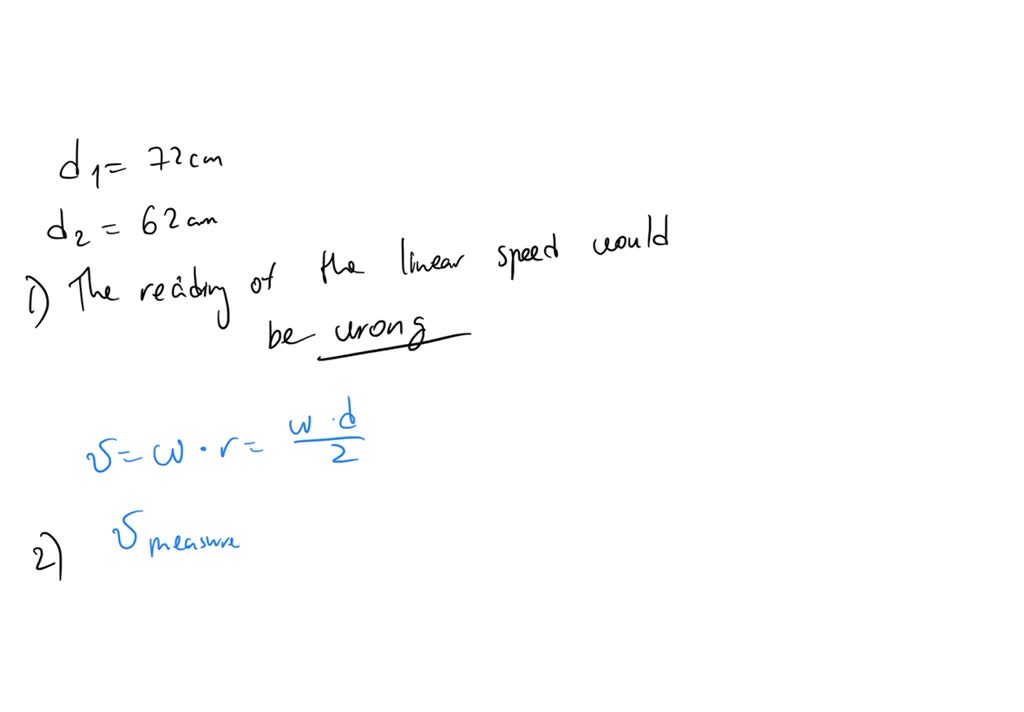 d₁ = 72cm
d₂ = 62cm
1) The reading of the linear speed would
be wrong
v = ω · r = ω · d / 2
2) v measure